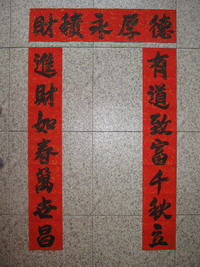 德厚永積財
有道致富千秋立
進財如春萬世昌